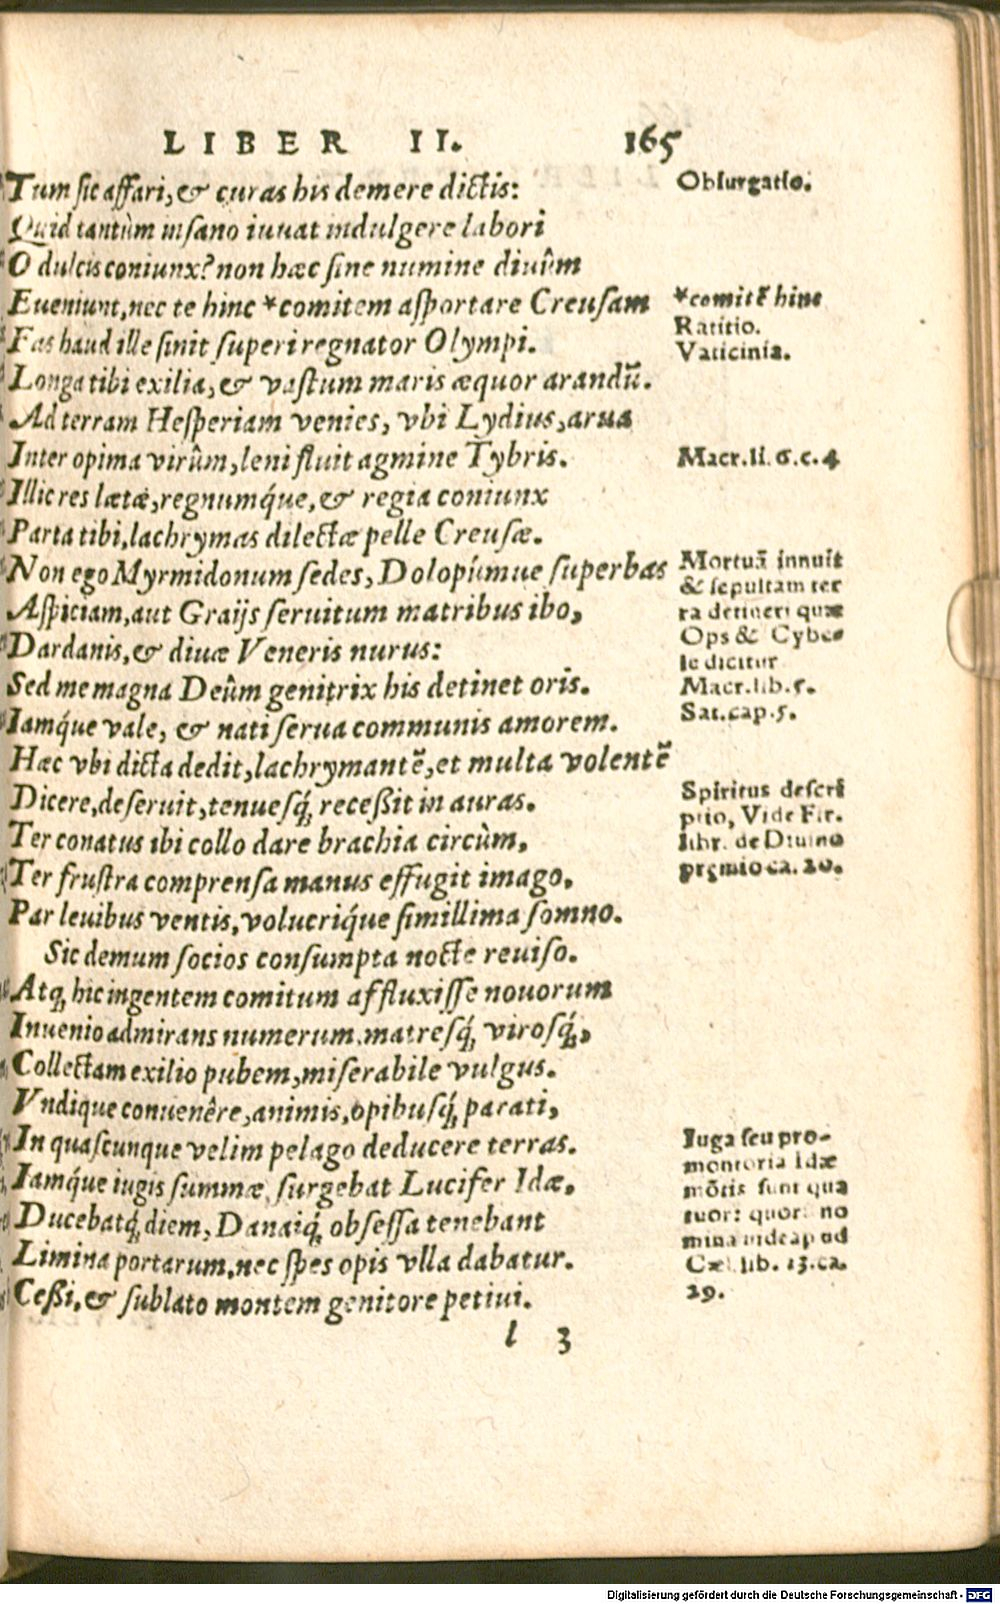 LIBER II. 165
Tum sic affari, & curas his demere dictis:
Quid tantùm insano iuuat indulgere labori
O dulcis coniunx? non hæc sine numine diuûm
Eueniunt, nec te hinc *comitem asportare Creusam
Fas haud ille sinit superi regnator Olympi.
Longa tibi exilia, & vastum maris æquor arandũ.
Ad terram Hesperiam venies, vbi Lydius, arua
Inter opima virûm, leni fluit agmine Tybris.
Illic res lætæ, regnumq́ue, & regia coniunx
Parta tibi, lachrymas dilectæ pelle Creusæ.
Non ego Myrmidonum sedes, Dolopúmue superbas
Aspiciam, aut Graijs seruitum matribus ibo,
Dardanis, & diuæ Veneris nurus:
Sed me magna Deûm genitrix his detinet oris.
Iamq́ue vale, & nati serua communis amorem.
Hæc vbi dicta dedit, lachrymantẽ, et multa volentẽ
Dicere, deseruit, tenuesq́; receßit in auras.
Ter conatus ibi collo dare brachia circùm,
Ter frustra comprensa manus effugit imago,
Par leuibus ventis, volucriq́ue simillima somno.
Sic demum socios consumpta nocte reuiso.
Atq; hic ingentem comitum affluxisse nouorum
Inuenio admirans numerum, matresq́; virosq́;,
Collectam exilio pubem, miserabile vulgus.
Vndique conuenêre, animis, opibusq́; parati,
In quascunque velim pelago deducere terras.
Iamq́ue iugis summæ surgebat Lucifer Idæ,
Ducebatq́; diem, Danaiq́; obsessa tenebant
Limina portarum, nec spes opis vlla dabatur.
Ceßi, & sublato montem genitore petiui.
l 3
Obiurgatio.
*comitẽ hinc
Ratitio.
Vaticinia.
Macr. li. 6. c. 4
Mortuã innuit
& sepultam ter
ra detineri quæ
Ops & Cybe-
le dicitur
Macr. lib. 5.
Sat. cap. 5.
Spiritus descri
ptio, Vide Fir.
libr. de Diuino
premio ca. 20.
Iuga seu pro-
montoria Idæ
mõtis sunt qua
tuor: quor. no
mina vide apud
Cæl. lib. 13. ca.
29.
Digitalisierung gefördert durch die Deutsche Forschungsgemeinschaft - DFG